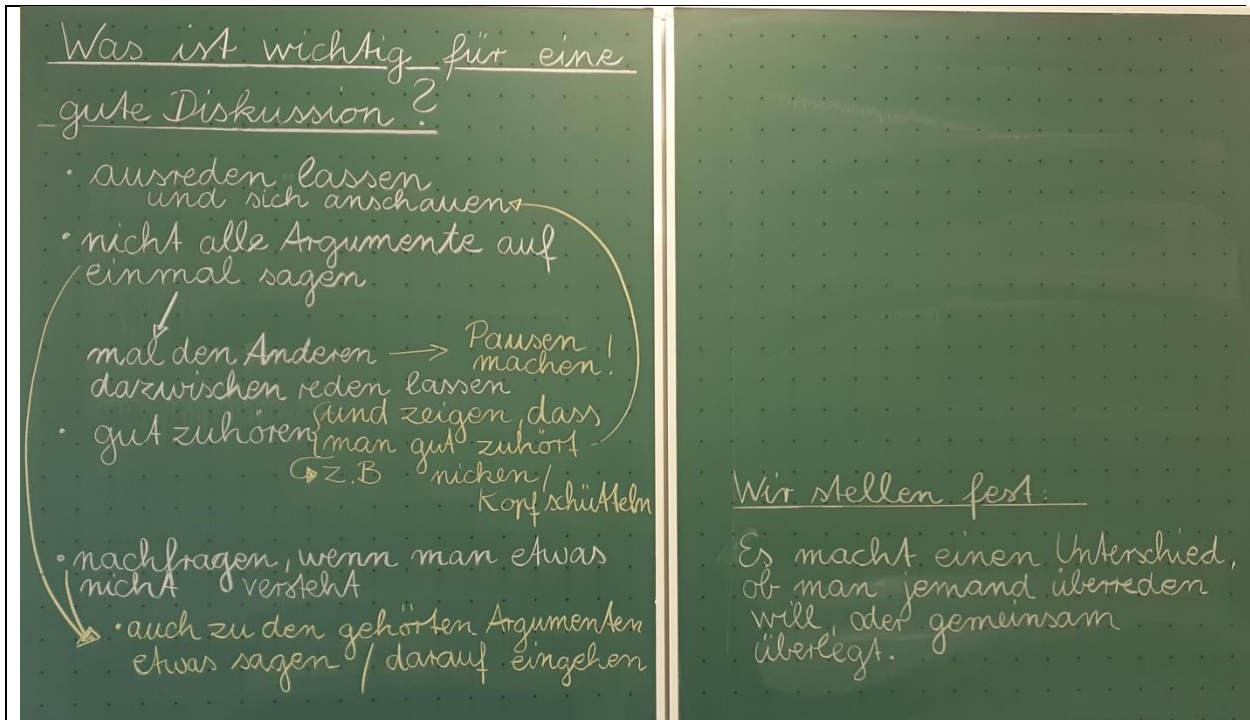 Was ist wichtig für eine
gute Diskussion?
• ausreden lassen
und sich anschauen
• nicht alle Argumente auf
einmal sagen
mal den Anderen → Pausen
machen!
dazwischen reden lassen
• gut zuhören und zeigen, dass
man gut zuhört
z.B nicken/
Kopfschütteln
• nachfragen, wenn man etwas
nicht versteht
• auch zu den gehörten Argumenten
etwas sagen / darauf eingehen
Wir stellen fest:
Es macht einen Unterschied,
ob man jemand überreden
will, oder gemeinsam
überlegt.